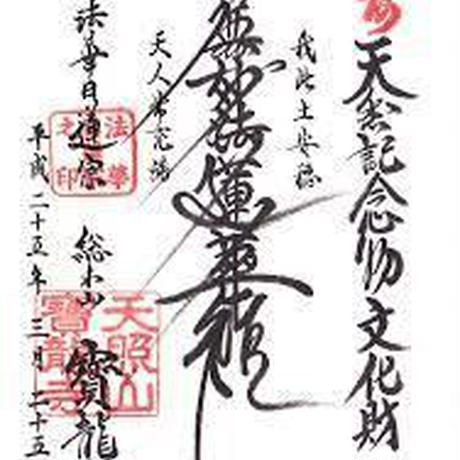 天然記念物文化財
我此土安穏
無妙法蓮華経
天人常充満
法華日蓮宗
総本山 寶龍
平成二十五年 三月 二十五
法華
之印
天照山
寶龍寺